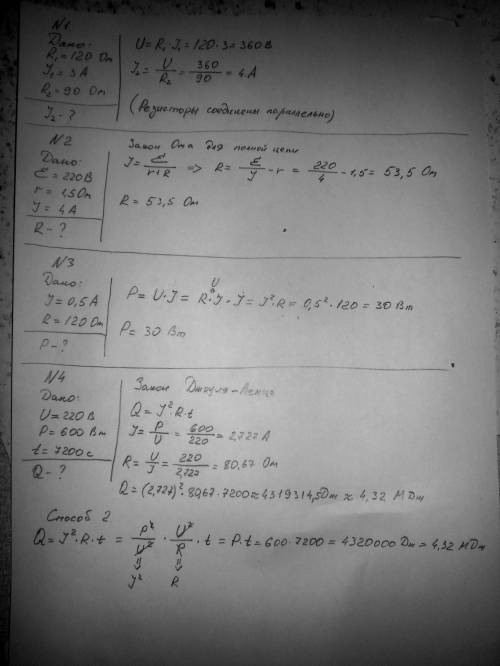 N1
Дано:
R₁=120 Ом
J₁=3A
R₂=90 Ом
J₂-?
U=R₁·J₁=120·3=360В
J₂=U/R₂=360/90=4A
(Резисторы соединены параллельно)
N2
Дано:
Ɛ=220В
r=1,5Ом
J=4A
R-?
Закон Ома для полной цепи
J=Ɛ/(r+R) => R=Ɛ/J-r=220/4-1,5=53,5 Ом
R=53,5 Ом
N3
Дано:
J=0,5A
R=120 Ом
P-?
U
P=U·J=R·J·J=J²·R=0,5²·120=30 Вт
P=30 Вт
N4
Дано:
U=220В
P=600 Вт
t=7200c
Q-?
Закон Джоуля-Ленца
Q=J²·R·t
J=P/U=600/220=2,727 A
R=U/J=220/2,727=80,67 Ом
Q=(2,727)²·80,67·7200≈4319314,5Дж≈4,32 МДж
Способ 2
Q=J²·R·t=P²/U²·U²/P·t=P·t=600·7200=4320000 Дж=4,32 МДж
J² R